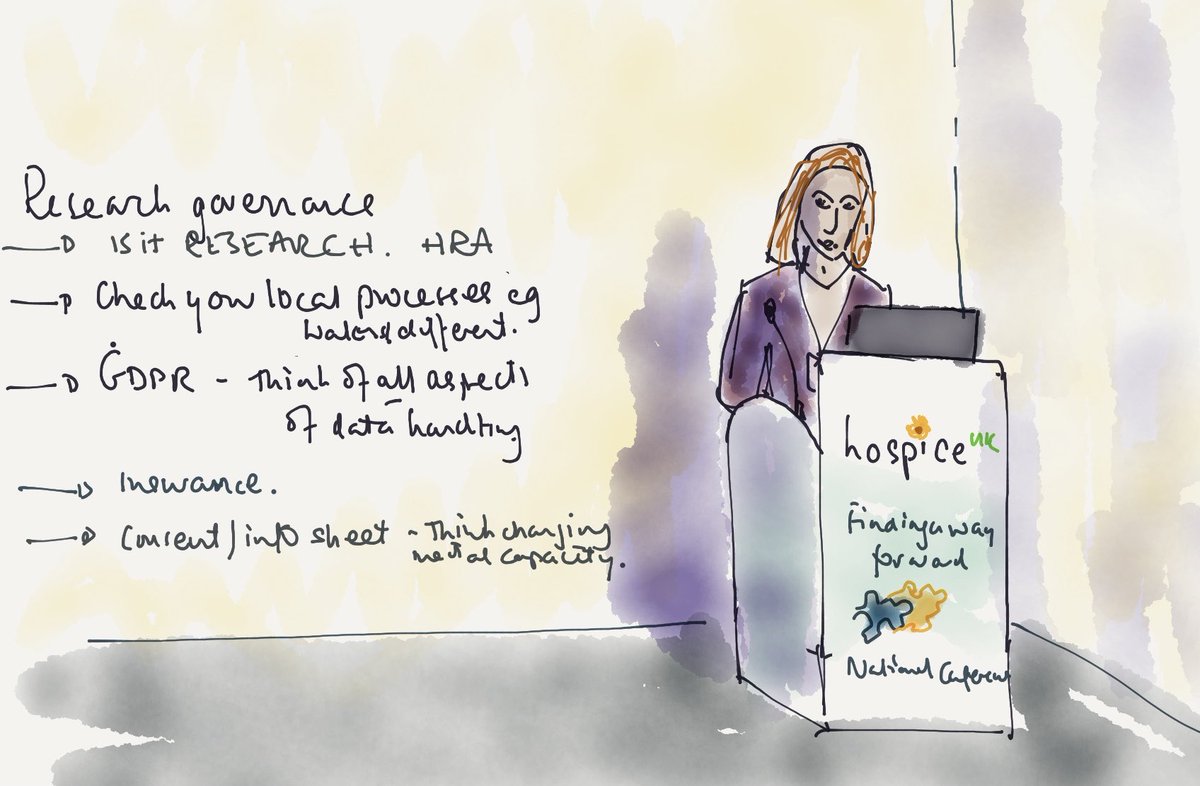 Research governance
→ Is it RESEARCH. HRA
→ Check your local processes eg
Wales different.
→ GDPR - think of all aspects
of data handling
→ Insurance.
→ Consent/info sheet - Think changing
mental capacity.
hospice UK
Finding a way
forward
National Conference